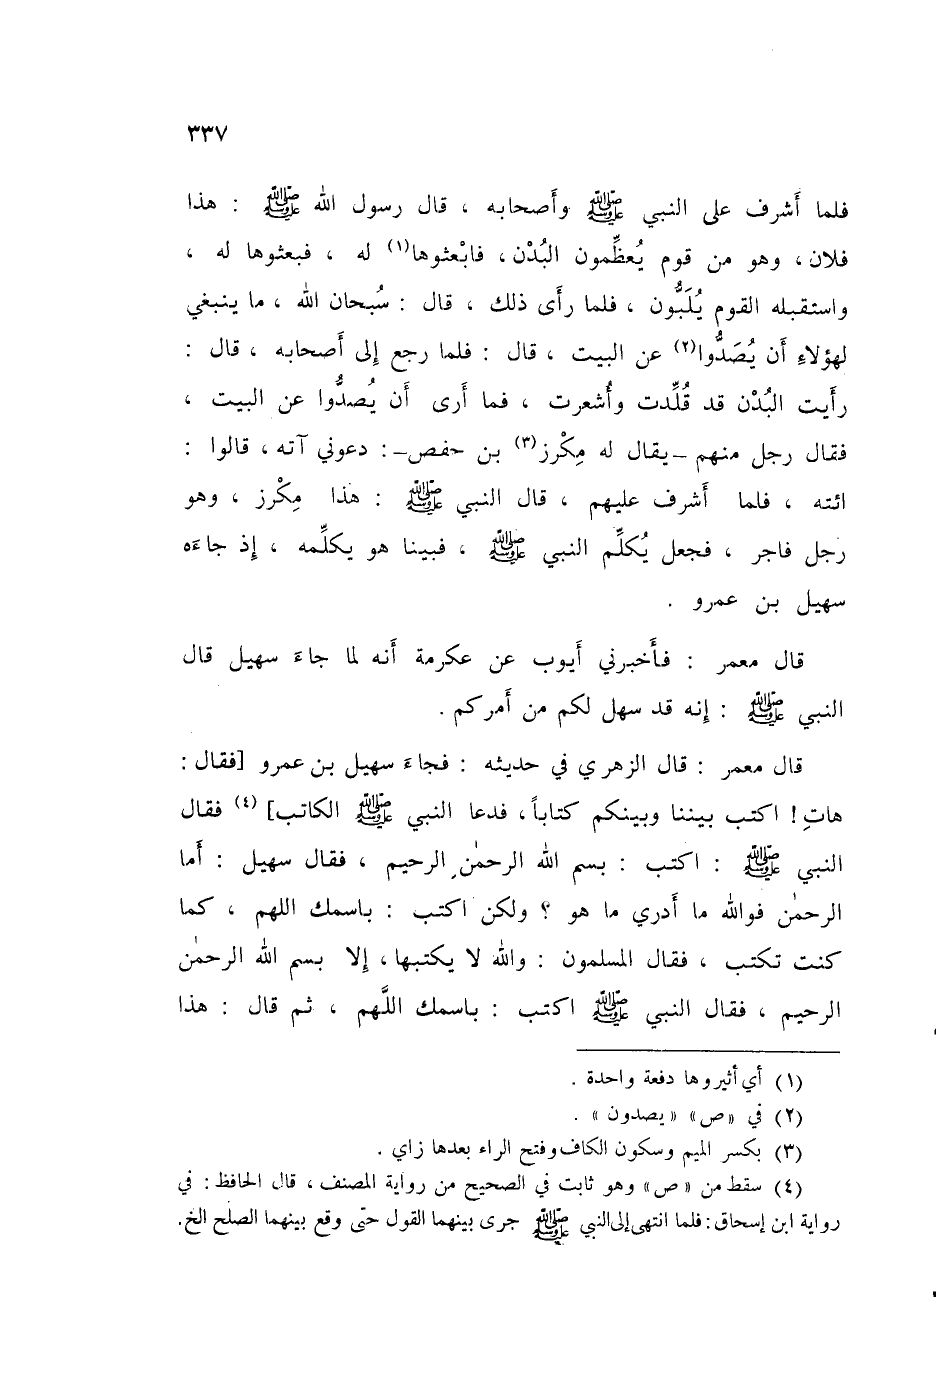 ٣٣٧
فلما أَشرف على النبي ﷺ وأَصحابه ، قال رسول الله ﷺ : هذا
فلان ، وهو من قوم يُعظِّمون البُدْن ، فابْعثوها(١) له ، فبعثوها له ،
واستقبله القوم يُلَبُّون ، فلما رأَى ذلك ، قال : سُبحان الله ، ما ينبغي
لهؤلاءِ أَن يُصَدُّوا(٢) عن البيت ، قال : فلما رجع إِلى أَصحابه ، قال :
رأَيت البُدْن قد قُلِّدت وأُشعرت ، فما أَرى أَن يُصدُّوا عن البيت ،
فقال رجل منهم ـ يقال له مِكْرز(٣) بن حفص ـ : دعوني آته ، قالوا :
ائته ، فلما أَشرف عليهم ، قال النبي ﷺ : هذا مِكْرز ، وهو
رجل فاجر ، فجعل يُكلِّم النبي ﷺ ، فبينا هو يكلِّمه ، إِذ جاءَه
سهيل بن عمرو .
قال معمر : فأَخبرني أَيوب عن عكرمة أَنه لما جاءَ سهيل قال
النبي ﷺ : إِنه قد سهل لكم من أَمركم .
قال معمر : قال الزهري في حديثه : فجاءَ سهيل بن عمرو [فقال :
هاتِ ! اكتب بيننا وبينكم كتاباً ، فدعا النبي ﷺ الكاتب] (٤) فقال
النبي ﷺ : اكتب : بسم الله الرحمٰن الرحيم ، فقال سهيل : أَما
الرحمٰن فوالله ما أَدري ما هو ؟ ولكن اكتب : باسمك اللهم ، كما
كنت تكتب ، فقال المسلمون : والله لا يكتبها ، إِلا بسم الله الرحمٰن
الرحيم ، فقال النبي ﷺ اكتب : باسمك اللَّهم ، ثم قال : هذا
(١) أي أثيروها دفعة واحدة .
(٢) في «ص» «يصدون» .
(٣) بكسر الميم وسكون الكاف وفتح الراء بعدها زاي .
(٤) سقط من «ص» وهو ثابت في الصحيح من رواية المصنف ، قال الحافظ : في
رواية ابن إسحاق : فلما انتهى إلى النبي ﷺ جرى بينهما القول حتى وقع بينهما الصلح الخ.